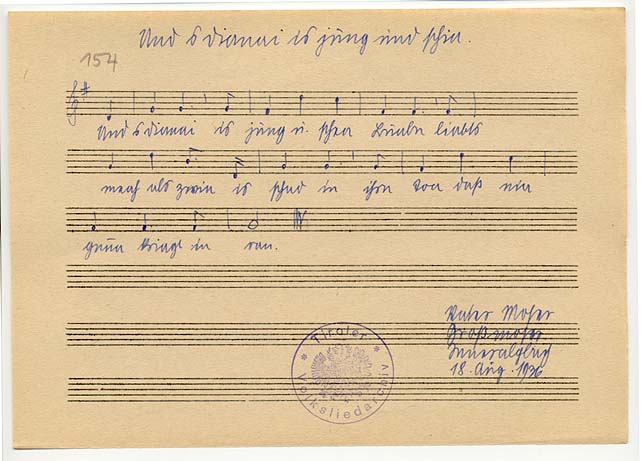 Und s Dianai is jung und schia.
154
Und s dianai is jung u. schea Buabn liabts
meah als zwia is schad in ihra
daß nia
kriagt in
ran.
Peter Moser
Großmoser
Inneralpbach
18. Aug. 1936
* Tiroler *
Volksliedarchiv